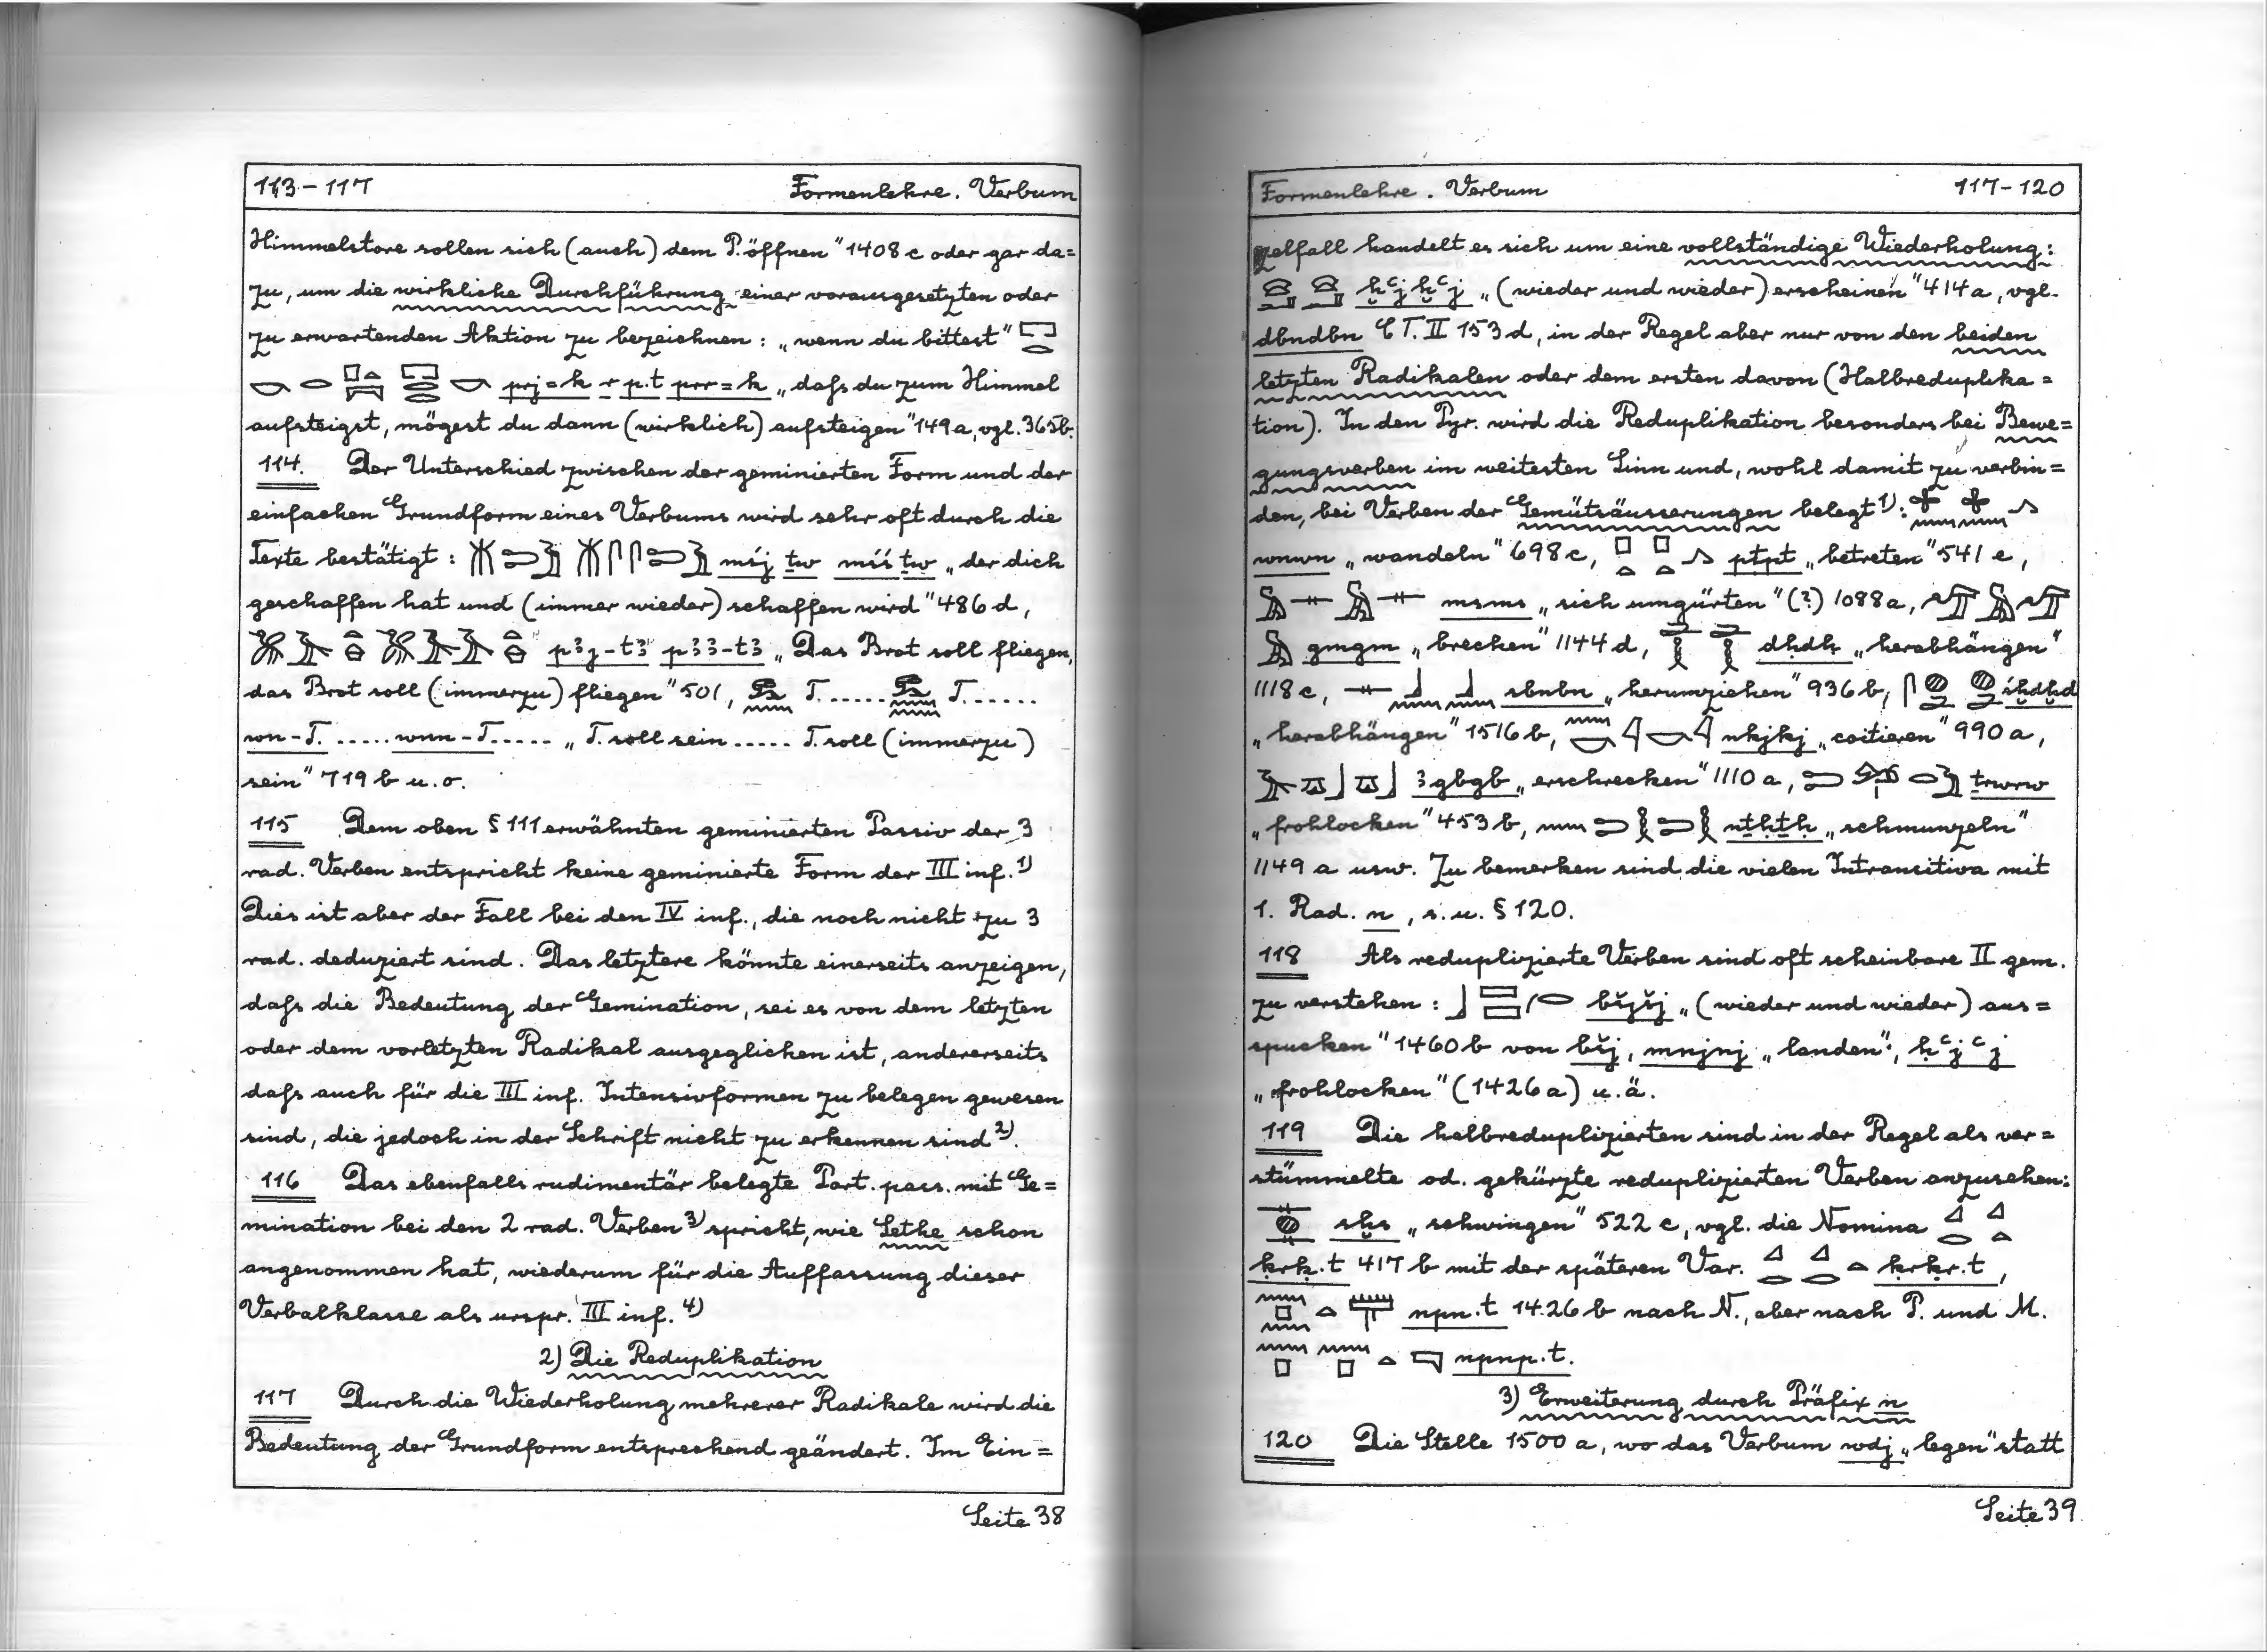 113-117 Formenlehre. Verbum
Himmelstore sollen sich (auch) dem P. öffnen" 1408 c oder gar da=
zu, um die wirkliche Durchführung einer vorausgesetzten oder
zu erwartenden Aktion zu bezeichnen: „wenn du bittest" 𓉐𓂋
𓎡 𓂋 𓊪𓏏𓇯 𓉐𓂋𓂋 𓎡 prj=k r p.t prr=k „daſs du zum Himmel
aufsteigst, mögest du dann (wirklich) aufsteigen" 149 a, vgl. 365 b.
114. Der Unterschied zwischen der geminierten Form und der
einfachen Grundform eines Verbums wird sehr oft durch die
Texte bestätigt: 𓄟𓍿𓅱 𓄟𓋴𓋴𓍿𓅱 mśj ṯw mśś ṯw „der dich
geschaffen hat und (immer wieder) schaffen wird" 486 d,
𓅮𓄿𓏏 𓅮𓄿𓄿𓏏 pꜣj-tꜣ pꜣꜣ-tꜣ „Das Brot soll fliegen,
das Brot soll (immerzu) fliegen" 501, 𓃹𓈖 T. ..... 𓃹𓈖𓈖 T. ......
wn-T. ..... wnn-T. ..... „T. soll sein ..... T. soll (immerzu)
sein" 719 b u. o.
115 Dem oben § 111 erwähnten geminierten Passiv der 3
rad. Verben entspricht keine geminierte Form der III inf. 1)
Dies ist aber der Fall bei den IV inf., die noch nicht zu 3
rad. deduziert sind. Das letztere könnte einerseits anzeigen,
daſs die Bedeutung der Gemination, sei es von dem letzten
oder dem vorletzten Radikal ausgeglichen ist, andererseits
daſs auch für die III inf. Intensivformen zu belegen gewesen
sind, die jedoch in der Schrift nicht zu erkennen sind 2).
116 Das ebenfalls rudimentär belegte Part. pass. mit Ge=
mination bei den 2 rad. Verben 3) spricht, wie Sethe schon
angenommen hat, wiederum für die Auffassung dieser
Verbalklasse als urspr. III inf. 4)
2) Die Reduplikation
117 Durch die Wiederholung mehrerer Radikale wird die
Bedeutung der Grundform entsprechend geändert. Im Ein=
Seite 38
Formenlehre. Verbum 117-120
zelfall handelt es sich um eine vollständige Wiederholung:
𓈍 𓈍 ḫꜥjḫꜥj „(wieder und wieder) erscheinen" 414 a, vgl.
dbndbn CT. II 153 d, in der Regel aber nur von den beiden
letzten Radikalen oder dem ersten davon (Halbreduplika=
tion). In den Pyr. wird die Reduplikation besonders bei Bewe=
gungsverben im weitesten Sinn und, wohl damit zu verbin=
den, bei Verben der Gemütsäusserungen belegt 1): 𓃹𓈖𓃹𓈖𓂻
wnwn „wandeln" 698 c, 𓊪𓏏𓊪𓏏𓂻 ptpt „betreten" 541 e,
𓅓𓊃𓅓𓊃 msms „sich umgürten" (?) 1088 a, 𓅠𓅓𓅠
𓅓 gmgm „brechen" 1144 d, 𓂧𓎛𓂧𓎛 dḥdḥ „herabhängen"
1118 c, 𓊃𓃀𓈖𓃀𓈖 sbnbn „herumziehen" 936 b, 𓋴𓐍𓂧𓐍𓂧 śḫdḫd
„herabhängen" 1516 b, 𓈖𓎡𓇋𓎡𓇋 nkjkj „coitieren" 990 a,
𓄿𓎼𓃀𓎼𓃀 ꜣgbgb „erschrecken" 1110 a, 𓍿𓂋𓅱 ṯrwrw
„frohlocken" 453 b, 𓈖𓍿𓎛𓍿𓎛 nṯḥṯḥ „schmunzeln"
1149 a usw. Zu bemerken sind die vielen Intransitiva mit
1. Rad. n, s. u. § 120.
118 Als reduplizierte Verben sind oft scheinbare II gem.
zu verstehen: 𓃀𓈙𓈙𓂐 bšjšj „(wieder und wieder) aus=
spucken" 1460 b von bšj, mnjnj „landen", ḥꜥjꜥj
„frohlocken" (1426 a) u. ä.
119 Die halbreduplizierten sind in der Regel als ver=
stümmelte od. gekürzte reduplizierten Verben anzusehen:
𓊃𓐍𓊃 sḫs „schwingen" 522 c, vgl. die Nomina 𓈎𓂋𓈎𓏏
ḳrḳ.t 417 b mit der späteren Var. 𓈎𓂋𓈎𓂋𓏏 ḳrḳr.t,
𓈖𓊪𓈖𓏏 npn.t 1426 b nach N., aber nach P. und M.
𓈖𓊪𓈖𓊪𓏏 npnp.t.
3) Erweiterung durch Präfix n
120 Die Stelle 1500 a, wo das Verbum wdj „legen" statt
Seite 39